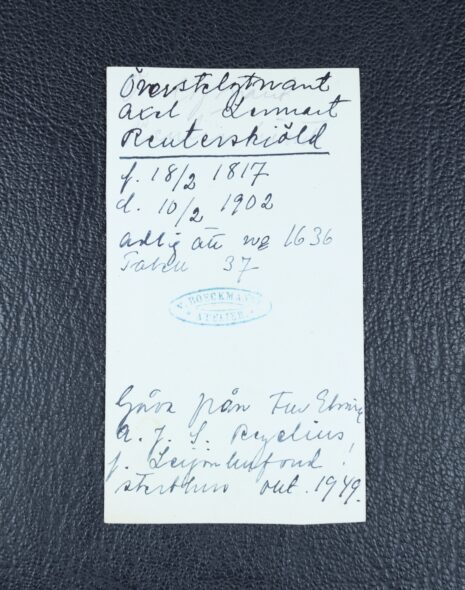 Överstelöjtnant
Axel Lennart
Reuterskiöld
f. 18/2 1817
d. 10/2 1902
adlig ätt 1636
Tabell 37
BOECKMANN
ATELIER
Gåva från Fru
A. J. S. Rezelius,
f. Leijonhufvud
sterbhus okt. 1949.